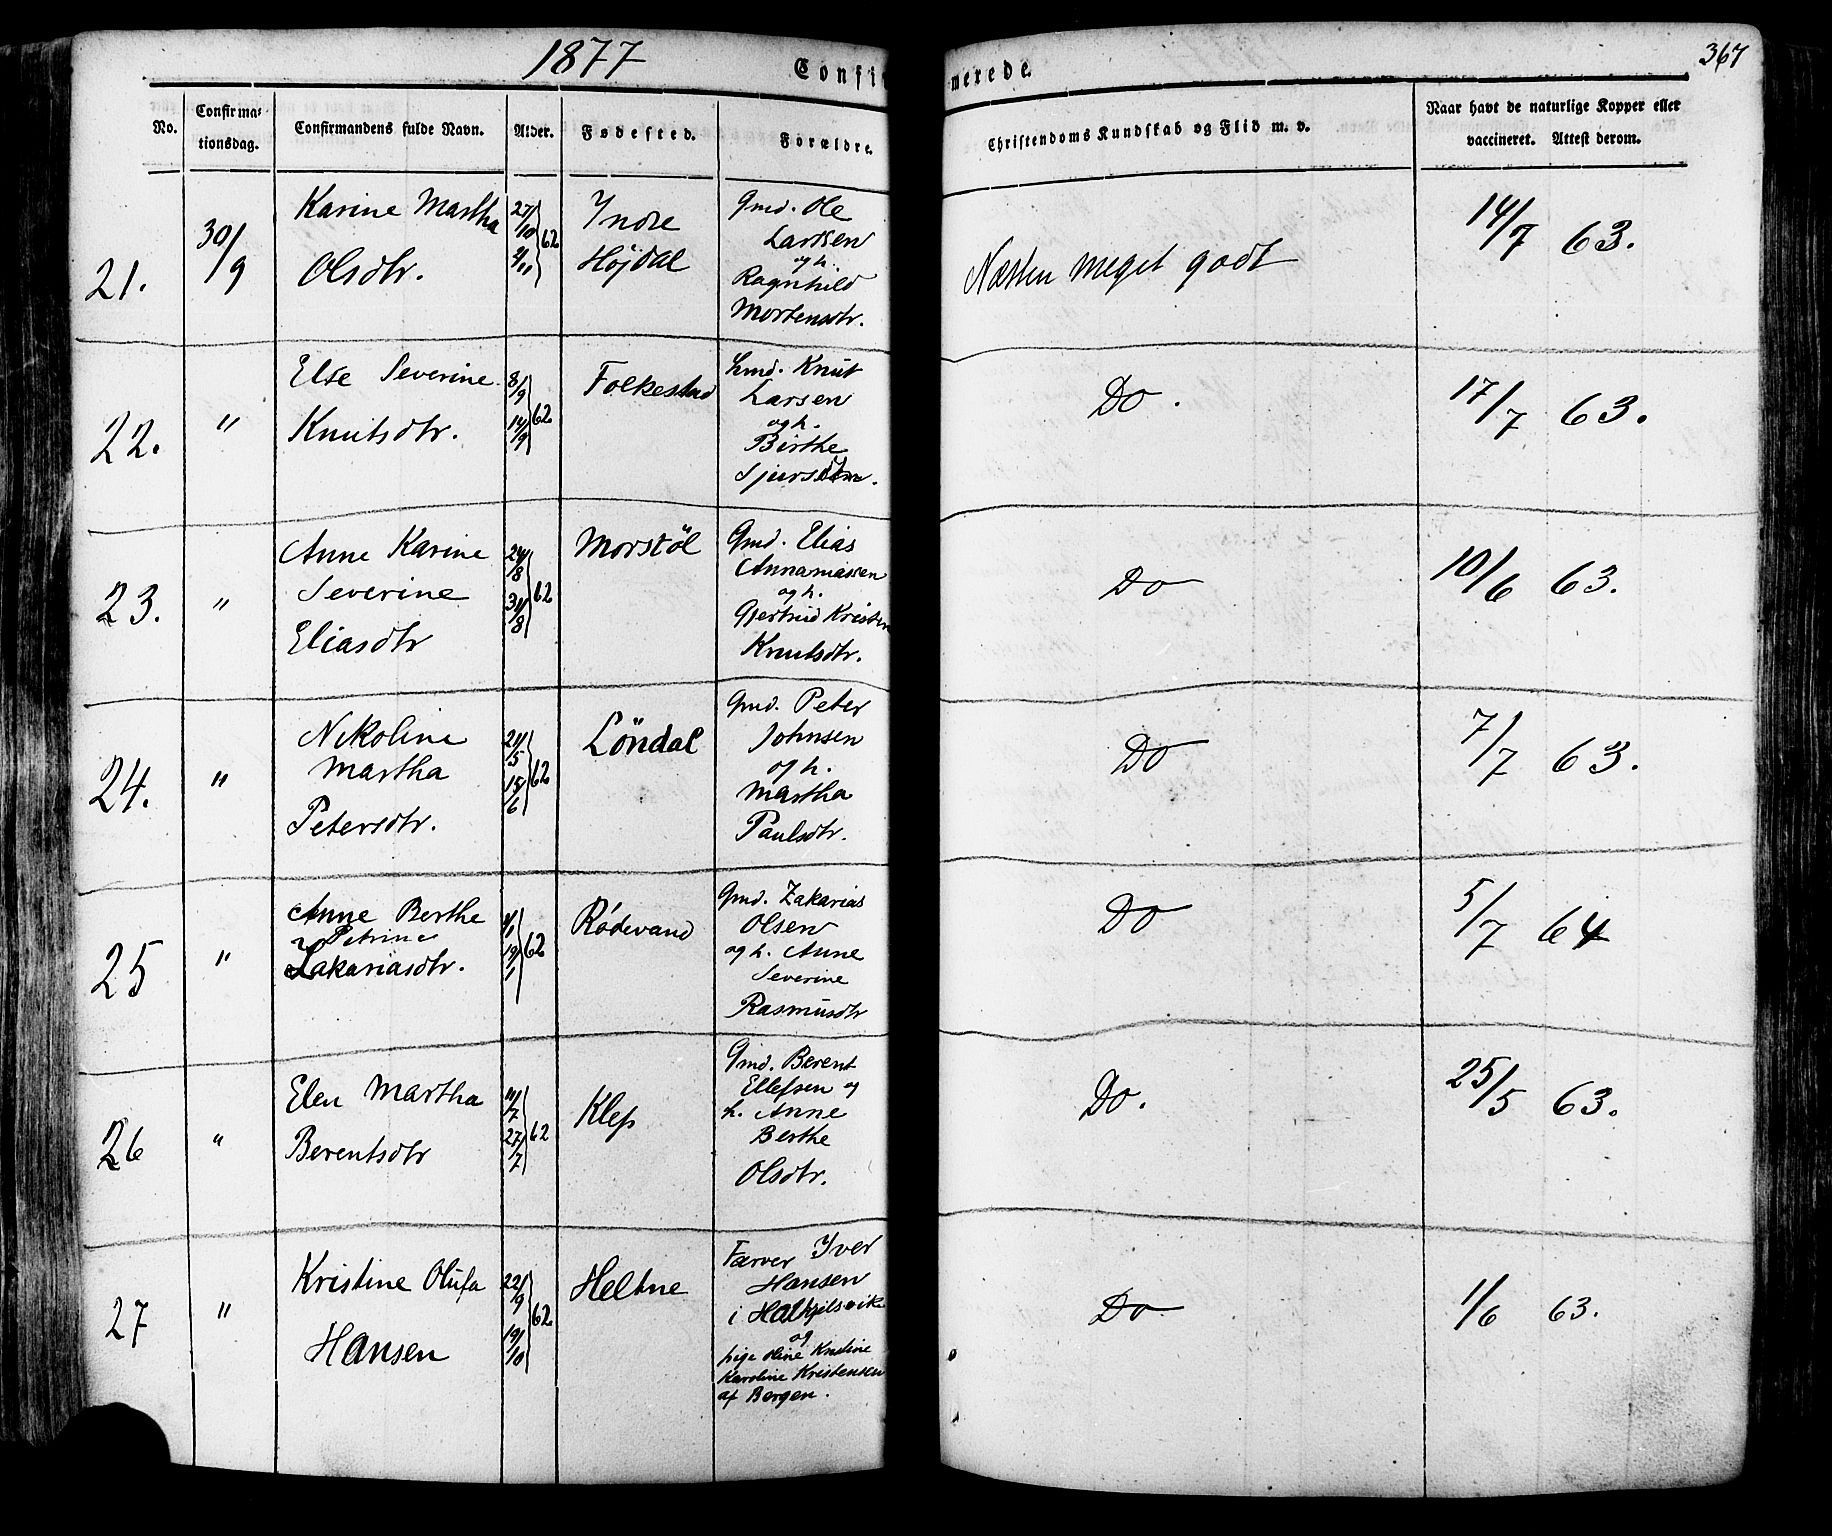 1877
Confir
merede.
367
No.
Confirma=
tionsdag.
Confirmandens fulde Navn.
Alder.
Fødested.
Forældre.
Christendoms Kundskab og Flid m. v.
Naar havt de naturlige Kopper eller
vaccineret. Attest derom.
21.
30/9
Karine Martha
Olsdtr.
27/10
9/11
62
Indre
Højdal
Gmd. Ole
Larsen
og h.
Ragnhild
Mortensdtr.
Næsten meget godt
14/7 63.
22.
"
Else Severine
Knutsdtr.
8/9
14/9
62
Folkestad
Lmd. Knut
Larsen
og h.
Birthe
Do.
17/7 63.
23.
"
Anne Karine
Severine
Eliasdtr
24/8
31/8
62
Morstöl
Gmd. Elias
Annaniassen
og h.
Gjertrud Kristin
Knutsdtr.
Do
10/6 63.
24.
"
Nikoline
Martha
Petersdtr.
21/5
15/6
62
Löndal
Gmd. Peter
Johnsen
og h.
Martha
Paulsdtr.
Do
7/7 63.
25
"
Anne Berthe
Petrine
Zakariasdtr.
19/1
62
Rødevand
Gmd. Zakarias
Olsen
og h. Anne
Severine
Rasmusdtr
Do
5/7 64
26
"
Elen Martha
Berentsdtr
11/7
27/7
62
Klep
Gmd. Berent
Ellefsen og
h. Anne
Berthe
Olsdtr.
Do.
25/5 63.
27
"
Kristine Olufa
Hansen
22/9
19/10
62
Heltne
Farver Iver
Hansen
i Halkjelsvik
og
pige Oline Kristine
Karoline Kristensen
af Bergen.
Do
1/6 63.